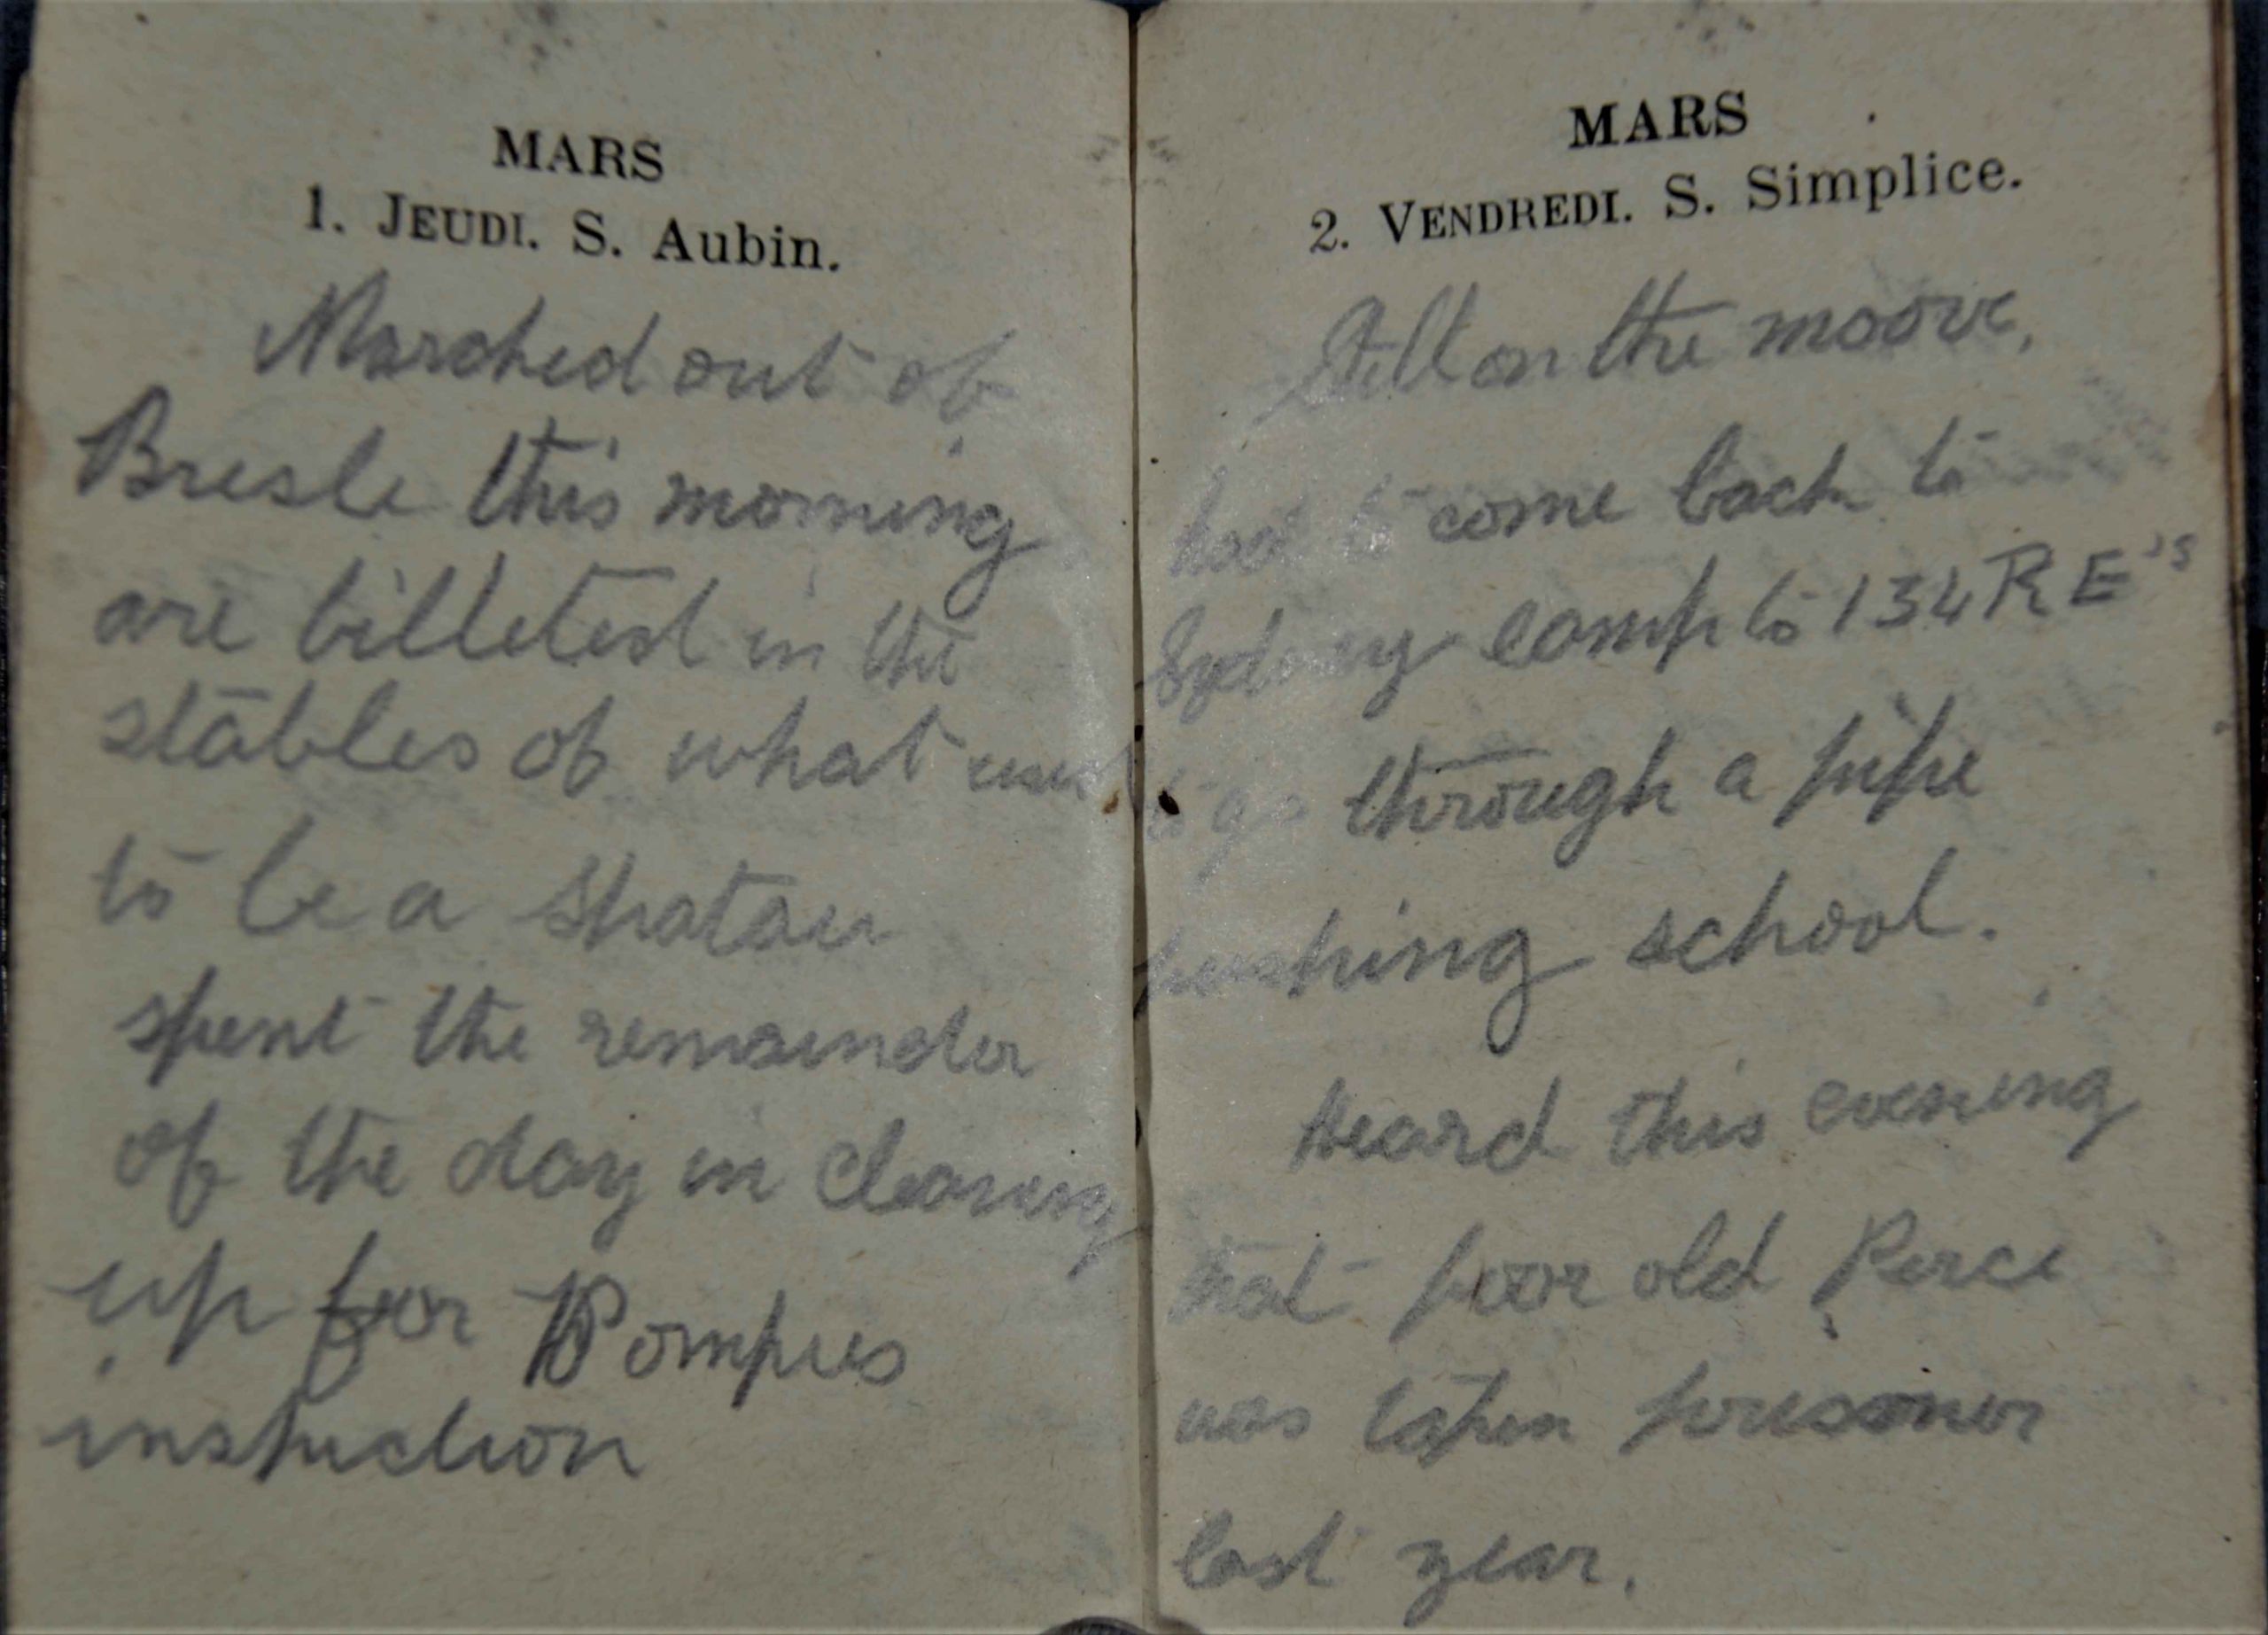 MARS
1. JEUDI. S. Aubin.
Marched out of
Bresle this morning
are billeted in the
stables of what used
to be a Shatau
spent the remainder
of the day in cleaning
up for Pompies
instruction
MARS
2. VENDREDI. S. Simplice.
Still on the moove,
had to come back to
Sydney camp to 134 RE's
to go through a pipe
pushing school.
Heard this evening
that poor old Perce
was taken prisoner
last year.